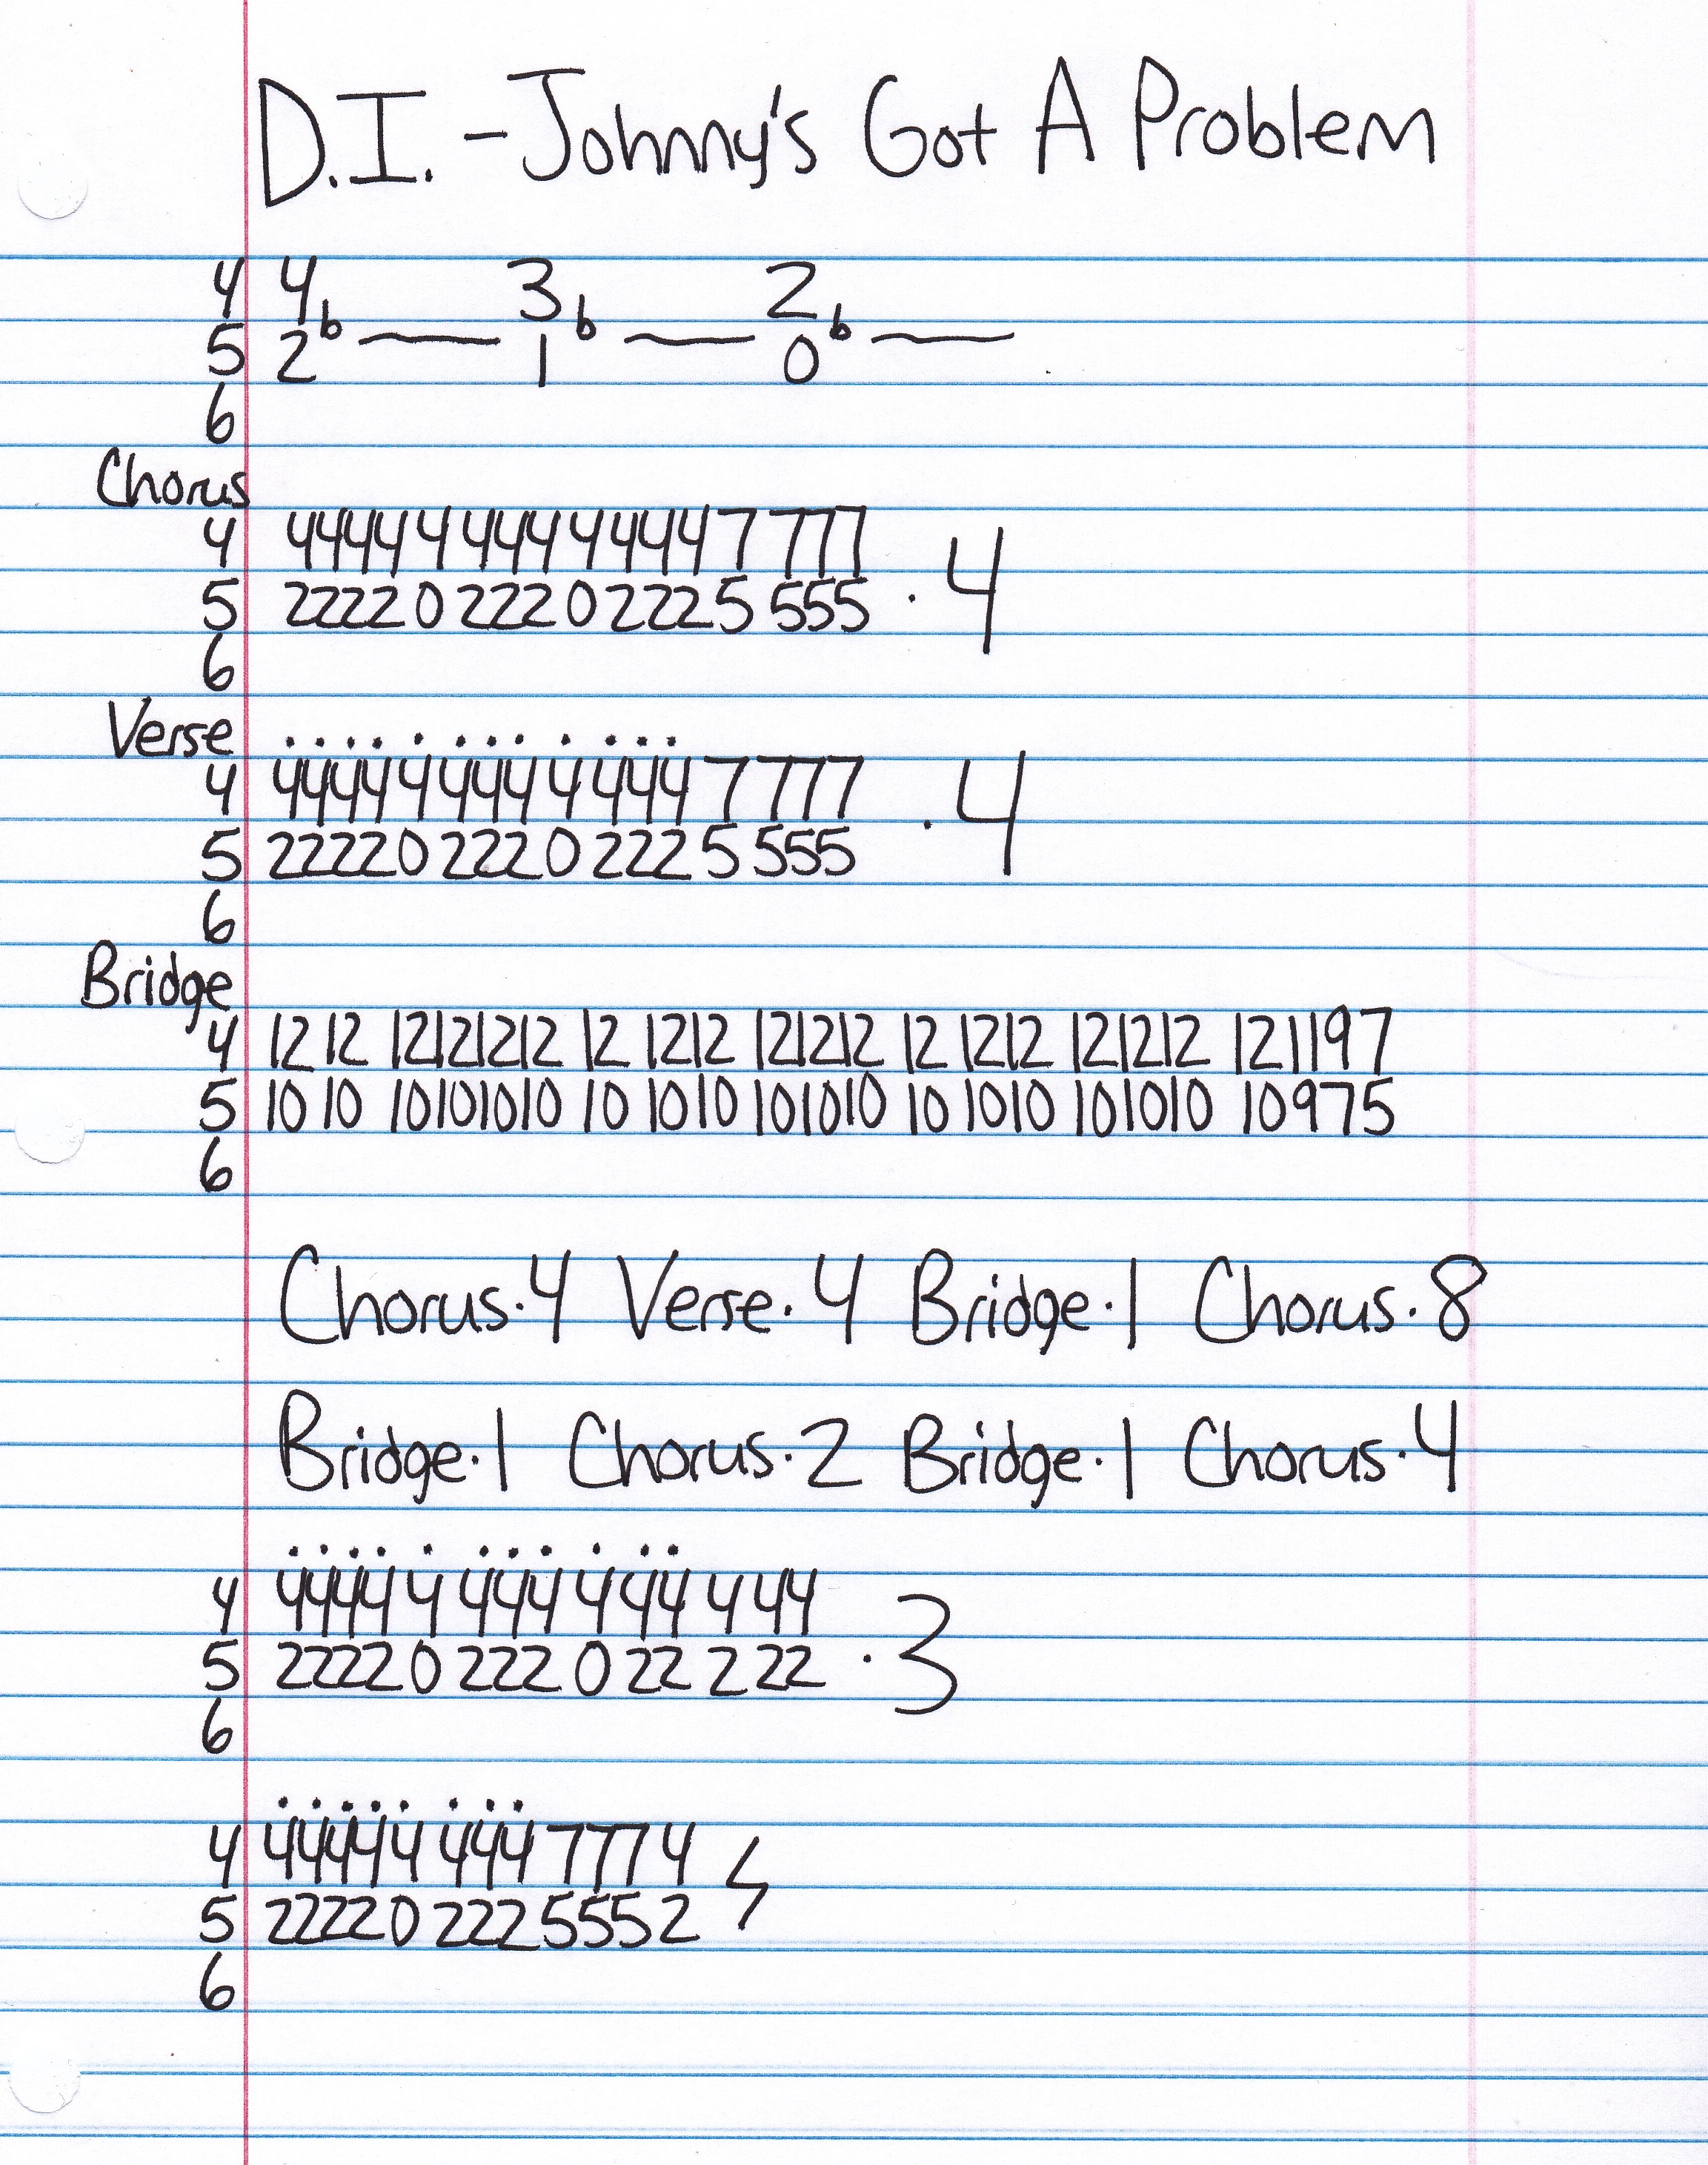 D.I. - Johnny's Got A Problem
4 4b 3b 2b
5 2 1 0
6
Chorus
4 4444 4 444 4 444 7 777
5 2222 0 222 0 222 5 555 · 4
6
Verse . . . . . . . . . . . .
4 4444 4 444 4 444 7 777
5 2222 0 222 0 222 5 555 · 4
6
Bridge
4 12 12 12121212 12 1212 121212 12 1212 121212 121197
5 10 10 10101010 10 1010 101010 10 1010 101010 10975
6
Chorus·4 Verse·4 Bridge·1 Chorus·8
Bridge·1 Chorus·2 Bridge·1 Chorus·4
. . . . . . . . . . .
4 4444 4 444 4 44 4 44
5 2222 0 222 0 22 2 22 · 3
6
. . . . . . . .
4 4444 4 444 777 4
5 2222 0 222 555 2
6